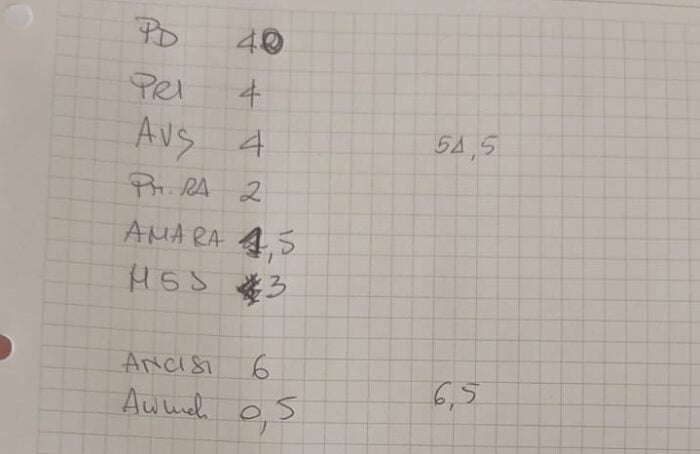 PD 40
PRI 4
AVS 4 54,5
PR.RA 2
AMARA 1,5
M5S 3
ANCISI 6
0,5 6,5